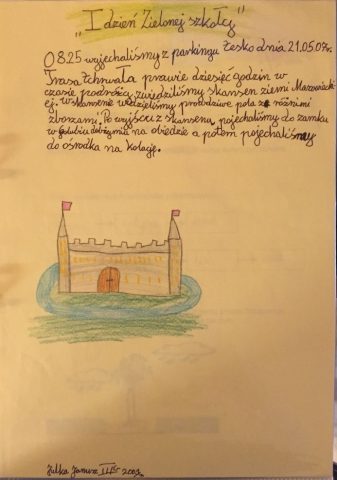 „I dzień Zielonej szkoły"
O 8.25 wyjechaliśmy z parkingu Lesko dnia 21.05.07r.
Trasa tchwała prawie dziesięć godzin w
czasie podróży zwiedziliśmy skansen ziemi Mazowieck-
ej. w skansenie widzieliśmy prawdziwe pola z różnimi
zborzami. Po wyjściu z skansenu pojechaliśmy do zamku
w golubiu dobżymia na obiedzie a potem pojechaliśmy
do ośrodka na kolację.
Julka Janusz